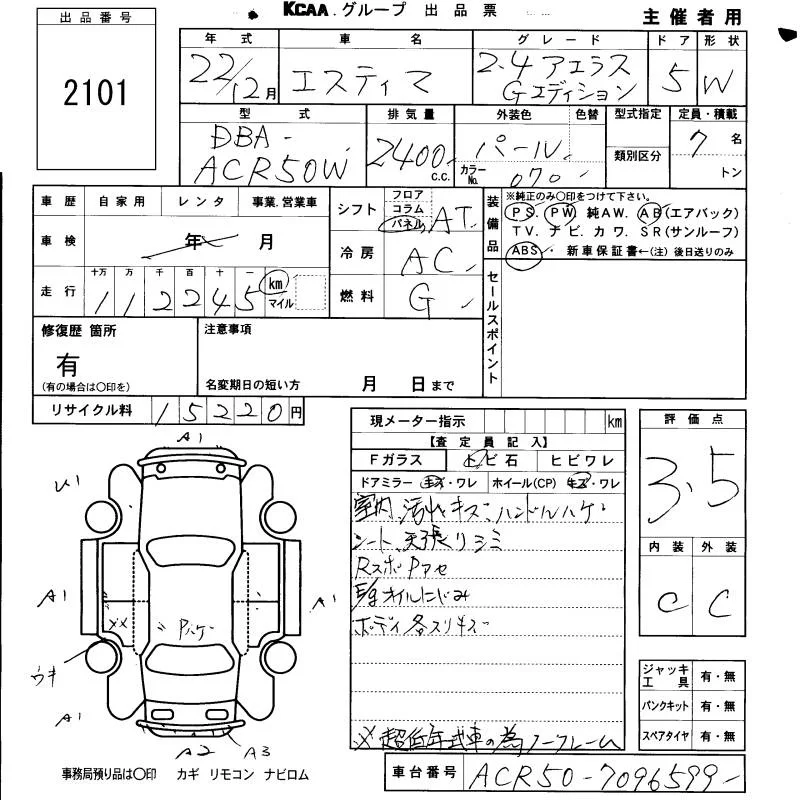 KCAA.グループ 出品票
主催者用
出品番号
2101
年式 車名 グレード ドア 形状
22/12月 エスティマ 2.4アエラス Gエディション 5 W
型式 排気量 外装色 色替 型式指定 定員・積載
DBA-ACR50W 2400 c.c. パール カラーNo. 070 類別区分 7名 トン
車歴 自家用 レンタ 事業.営業車
車検 年 月
走行 十万 万 千 百 十 一
112245 km マイル
シフト フロア コラム パネル AT
冷房 AC
燃料 G
装備品
※純正のみ〇印をつけて下さい。
PS. PW. 純AW. AB(エアバック)
TV. ナビ. カワ. SR(サンルーフ)
ABS・新車保証書←(注)後日送りのみ
セールスポイント
修復歴 箇所
有
(有の場合は〇印を)
注意事項
名変期日の短い方 月 日まで
リサイクル料 15220円
現メーター指示 km
【査定員記入】
Fガラス トビ石 ヒビワレ
ドアミラー キズ・ワレ ホイール(CP) キズ・ワレ
室内汚れキズ、ハンドルハゲ
シート、天張りシミ
RスポPアセ
E/gオイルにじみ
ボディ各スリキズ
※超低年式車の為ノークレーム
評価点
3.5
内装 外装
C C
ジャッキ工具 有・無
パンクキット 有・無
スペアタイヤ 有・無
A1
A1
A1
××
Pハゲ
ウキ
A1
A1
A2 A3
事務局預り品は〇印 カギ リモコン ナビロム
車台番号 ACR50-7096599